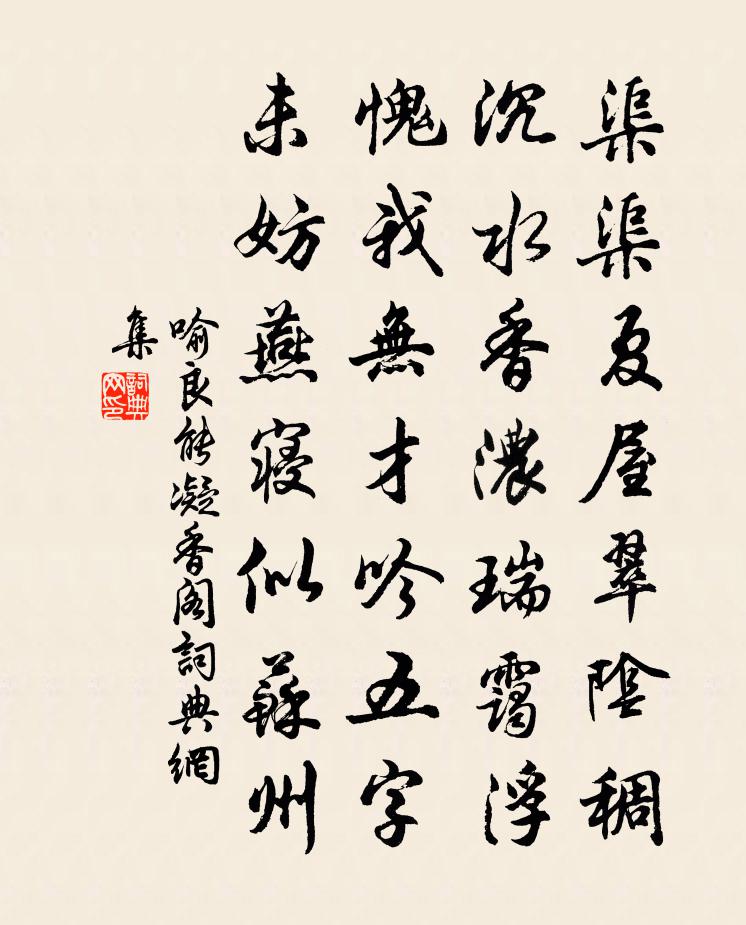 渠渠夏屋翠陰稠
沉水香濃瑞靄浮
愧我無才吟五字
未妨燕寢似蘇州
喻良能凝香阁詞典網
集
詞典網印